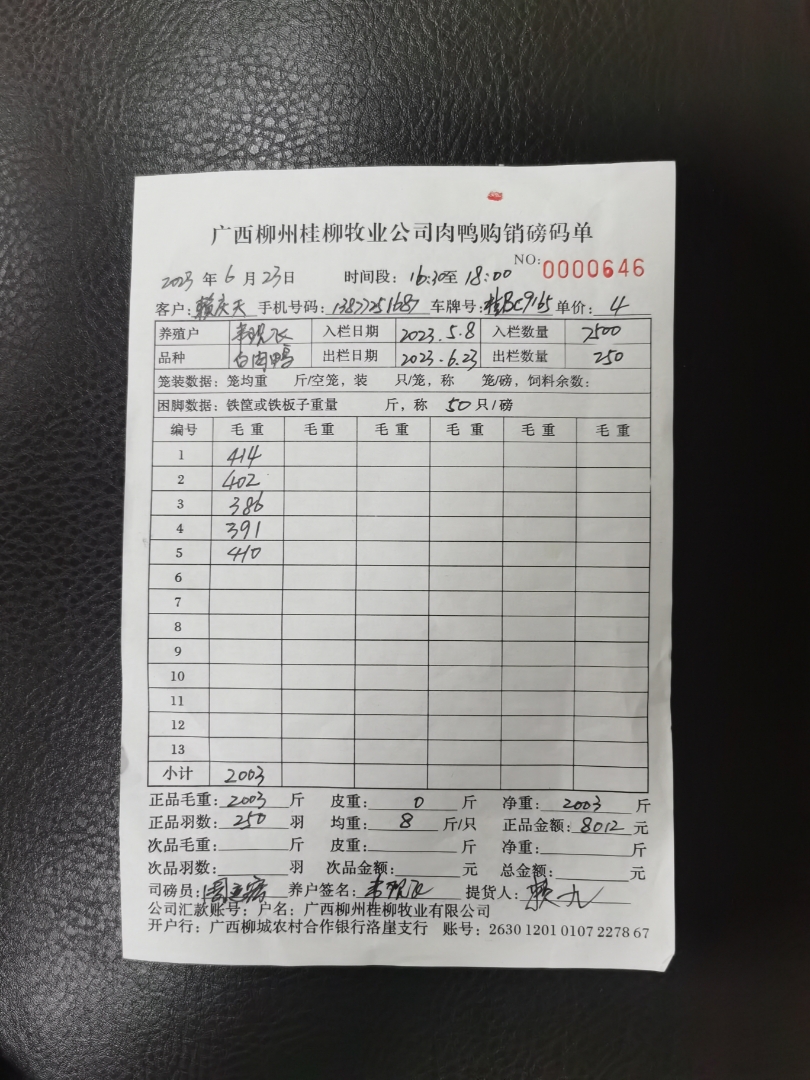 广西柳州桂柳牧业公司肉鸭购销磅码单
NO: 0000646
2023 年 6 月 23 日 时间段: 16:30 至 18:00
客户: 赖庆天 手机号码: 13877251687 车牌号: 桂BC9165 单价: 4
养殖户 入栏日期 2023.5.8 入栏数量 2500
品种 白肉鸭 出栏日期 2023.6.23 出栏数量 250
笼装数据: 笼均重 斤/空笼, 装 只/笼, 称 笼/磅, 饲料余数:
困脚数据: 铁筐或铁板子重量 斤, 称 50 只/磅
编号 毛重 毛重 毛重 毛重 毛重 毛重
1 414
2 402
3 386
4 391
5 410
6
7
8
9
10
11
12
13
小计 2003
正品毛重: 2003 斤 皮重: 0 斤 净重: 2003 斤
正品羽数: 250 羽 均重: 8 斤/只 正品金额: 8012 元
次品毛重: 斤 皮重: 斤 净重: 斤
次品羽数: 羽 次品金额: 元 总金额: 元
司磅员: 养户签名: 提货人: 赖九
公司汇款账号: 户名: 广西柳州桂柳牧业有限公司
开户行: 广西柳城农村合作银行洛崖支行 账号: 2630 1201 0107 2278 67